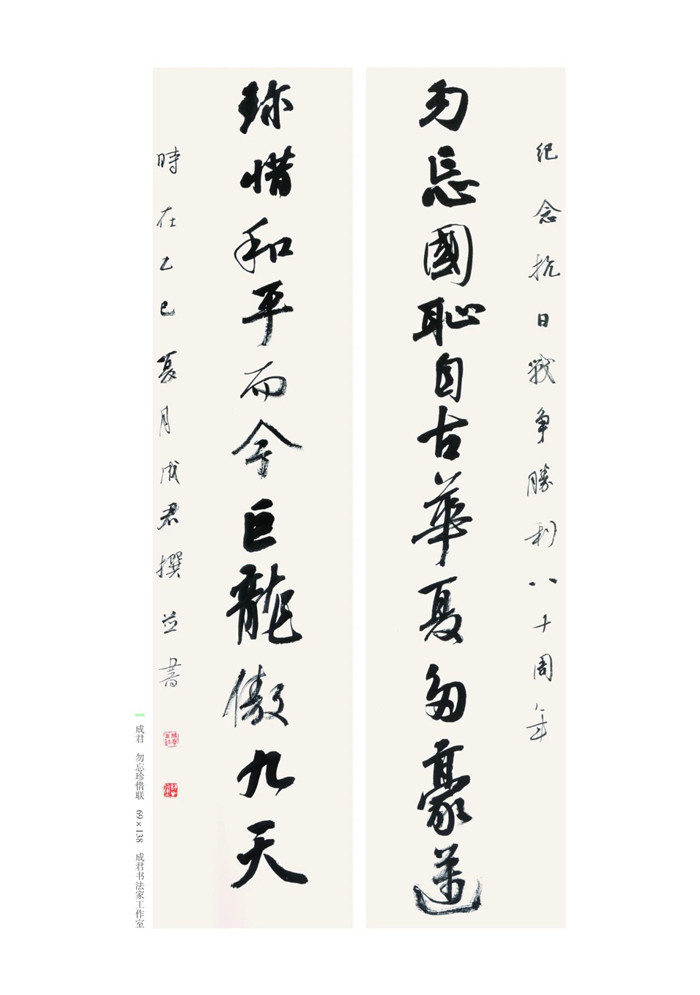 紀念抗日戰争勝利八十周年
勿忘國恥自古華夏多豪邁
珎惜和平而今巨龍傲九天
時在乙巳夏月成君撰並書
成君 勿忘珍惜联 69×138 成君书法家工作室